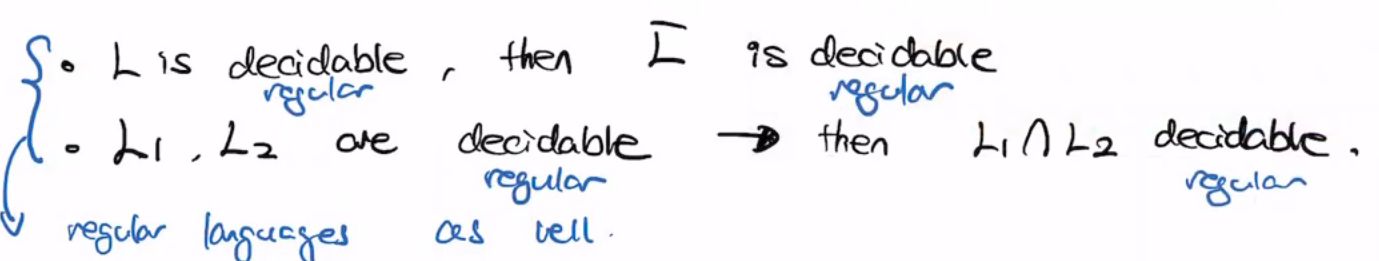 • L is decidable, then L̅ is decidable
regular regular
• L1, L2 are decidable → then L1 ∩ L2 decidable.
regular regular
regular languages as well.